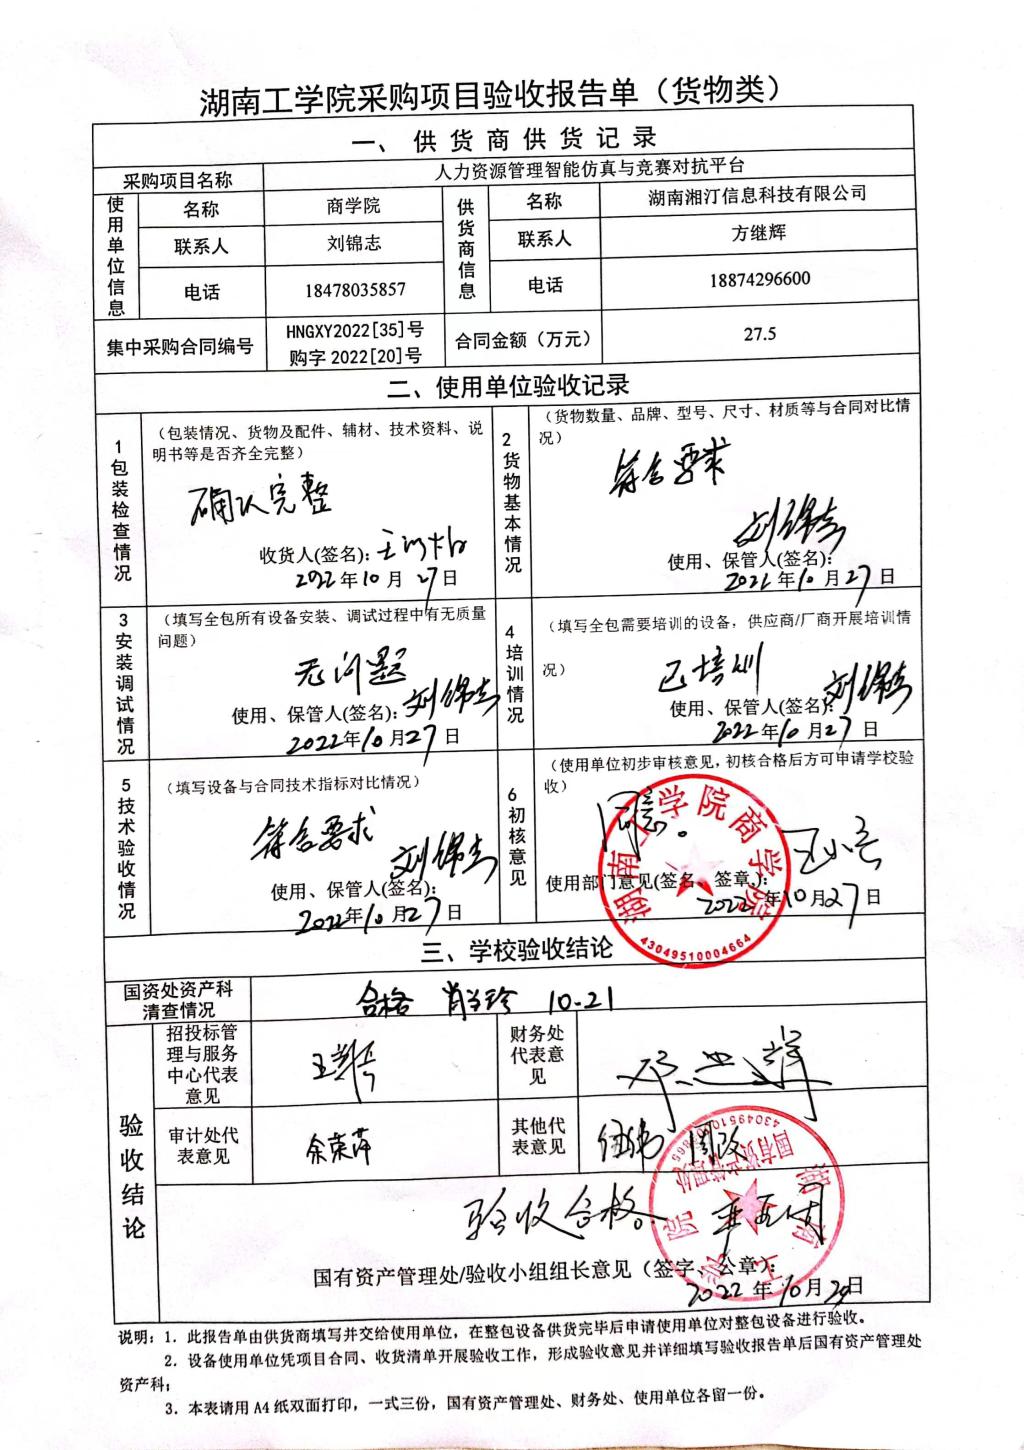 湖南工学院采购项目验收报告单（货物类）
一、供货商供货记录
采购项目名称
人力资源管理智能仿真与竞赛对抗平台
使用单位信息
名称
商学院
供货商信息
名称
湖南湘汀信息科技有限公司
联系人
刘锦志
联系人
方继辉
电话
18478035857
电话
18874296600
集中采购合同编号
HNGXY2022[35]号
购字 2022[20]号
合同金额（万元）
27.5
二、使用单位验收记录
1包装检查情况
（包装情况、货物及配件、辅材、技术资料、说
明书等是否齐全完整）
确认完整
收货人(签名):
2022年10月27日
2货物基本情况
（货物数量、品牌、型号、尺寸、材质等与合同对比情
况）
符合要求
刘锦志
使用、保管人(签名):
2022年10月27日
3安装调试情况
（填写全包所有设备安装、调试过程中有无质量
问题）
无问题
使用、保管人(签名):刘锦志
2022年10月27日
4培训情况
（填写全包需要培训的设备，供应商/厂商开展培训情
况）
已培训
使用、保管人(签名):刘锦志
2022年10月27日
5技术验收情况
（填写设备与合同技术指标对比情况）
符合要求
刘锦志
使用、保管人(签名):
2022年10月27日
6初核意见
（使用单位初步审核意见，初核合格后方可申请学校验
收）
同意。
湖南工学院商学院
使用部门意见(签名、签章):
2022年10月27日
43049510004664
三、学校验收结论
国资处资产科
清查情况
合格 10-21
验收结论
招投标管
理与服务
中心代表
意见
财务处
代表意
见
审计处代
表意见
余荣萍
其他代
表意见
验收合格。
湖南工学院
国有资产管理处
国有资产管理处/验收小组组长意见（签字、公章）:
2022年10月29日
说明：1. 此报告单由供货商填写并交给使用单位，在整包设备供货完毕后申请使用单位对整包设备进行验收。
2. 设备使用单位凭项目合同、收货清单开展验收工作，形成验收意见并详细填写验收报告单后国有资产管理处
资产科;
3. 本表请用 A4 纸双面打印，一式三份，国有资产管理处、财务处、使用单位各留一份。